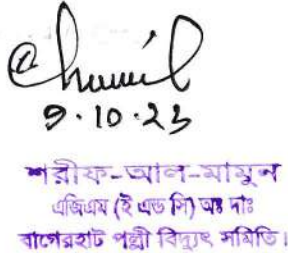 9.10.23
শরীফ-আল-মামুন
এজিএম (ই এন্ড সি) অঃ দাঃ
বাগেরহাট পল্লী বিদ্যুৎ সমিতি।